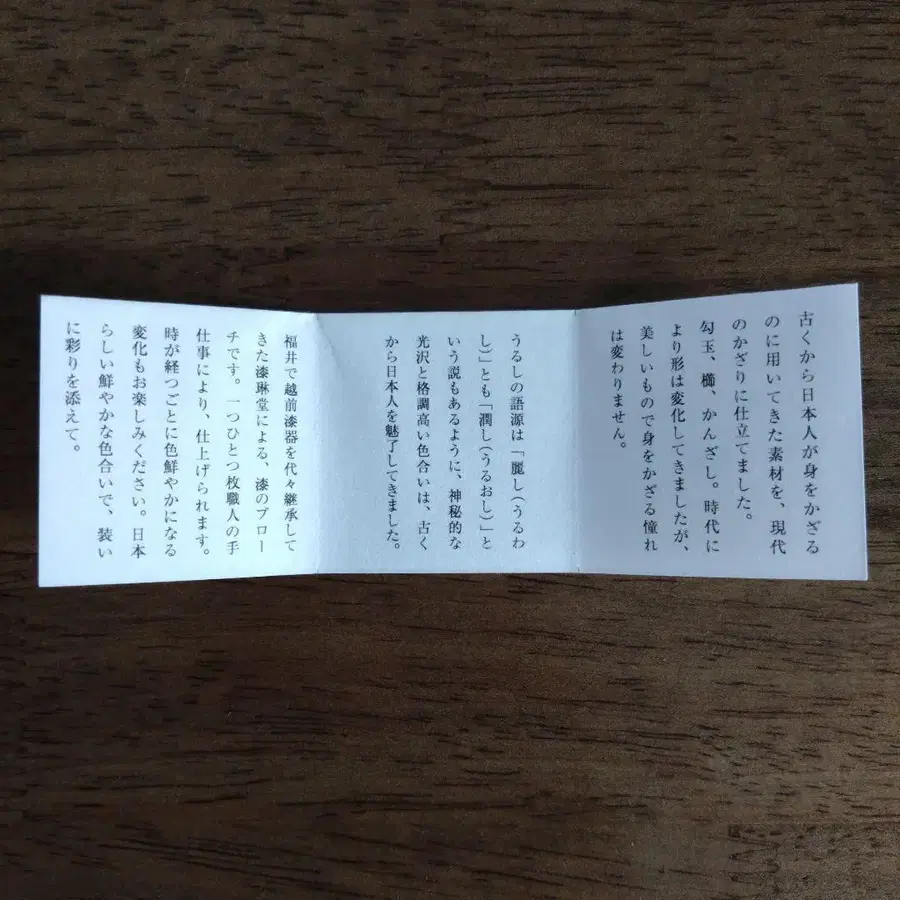 古くから日本人が身をかざる
のに用いてきた素材を、現代
のかざりに仕立てました。
勾玉、櫛、かんざし。時代に
より形は変化してきましたが、
美しいもので身をかざる憧れ
は変わりません。
うるしの語源は「麗し（うるわ
し）」とも「潤し（うるおし）」と
いう説もあるように、神秘的な
光沢と格調高い色合いは、古く
から日本人を魅了してきました。
福井で越前漆器を代々継承して
きた漆琳堂による、漆のブロー
チです。一つひとつ枚職人の手
仕事により、仕上げられます。
時が経つごとに色鮮やかになる
変化もお楽しみください。日本
らしい鮮やかな色合いで、装い
に彩りを添えて。